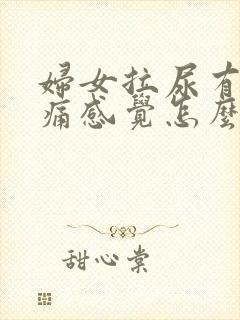 婦女拉尿有
痛感覺怎麼
甜心棠